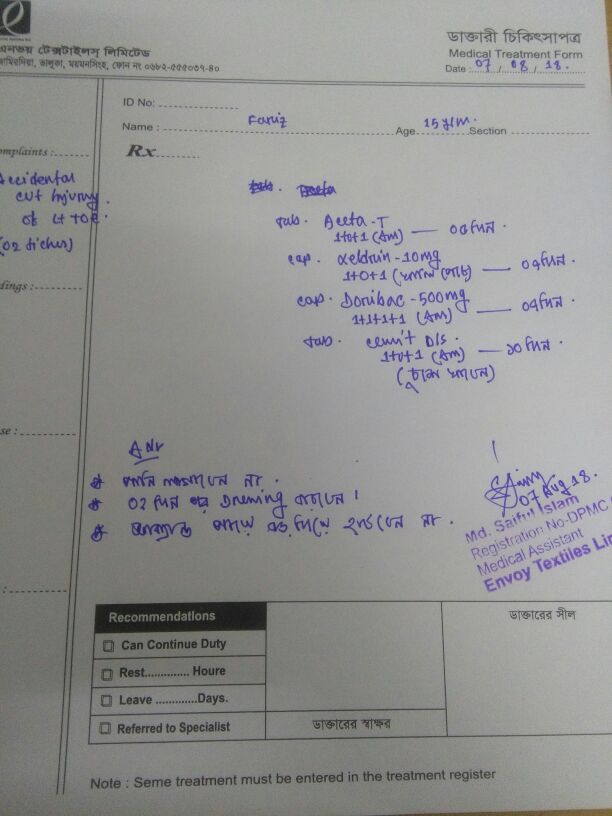 এনভয় টেক্সটাইলস্ লিমিটেড
ভালুকা, ময়মনসিংহ, ফোন নং ০৬৮২-৫৫৫০৩৭-৪০
ডাক্তারী চিকিৎসাপত্র
Medical Treatment Form
Date : 07 / 08 / 18.
ID No:
Name : Fariz Age 15 y/m. Section
Rx
omplaints :
Accidental
cut injury
of Lt TOE.
(02 stiches)
tab. Aceta-T
1+0+1 (Am) — 03 দিন.
cap. Xeldrin-10mg
1+0+1 (খালি পেটে) — 07 দিন.
cap. Doribac-500mg
1+1+1+1 (Am) — 07 দিন.
tab. cemit D/S
1+0+1 (Am) — ১০ দিন.
(চুষে খাবেন)
dings :
se :
Adv
পানি লাগাবেন না.
02 দিন পর Dressing করাবেন।
পায়ে দিয়ে হাটবেন না.
07 Aug 18.
Md. Saiful Islam
Registration No-DPMC
Medical Assistant
Envoy Textiles Lim
Recommendations
Can Continue Duty
Rest.............. Houre
Leave .............Days.
Referred to Specialist
ডাক্তারের স্বাক্ষর
ডাক্তারের সীল
Note : Seme treatment must be entered in the treatment register